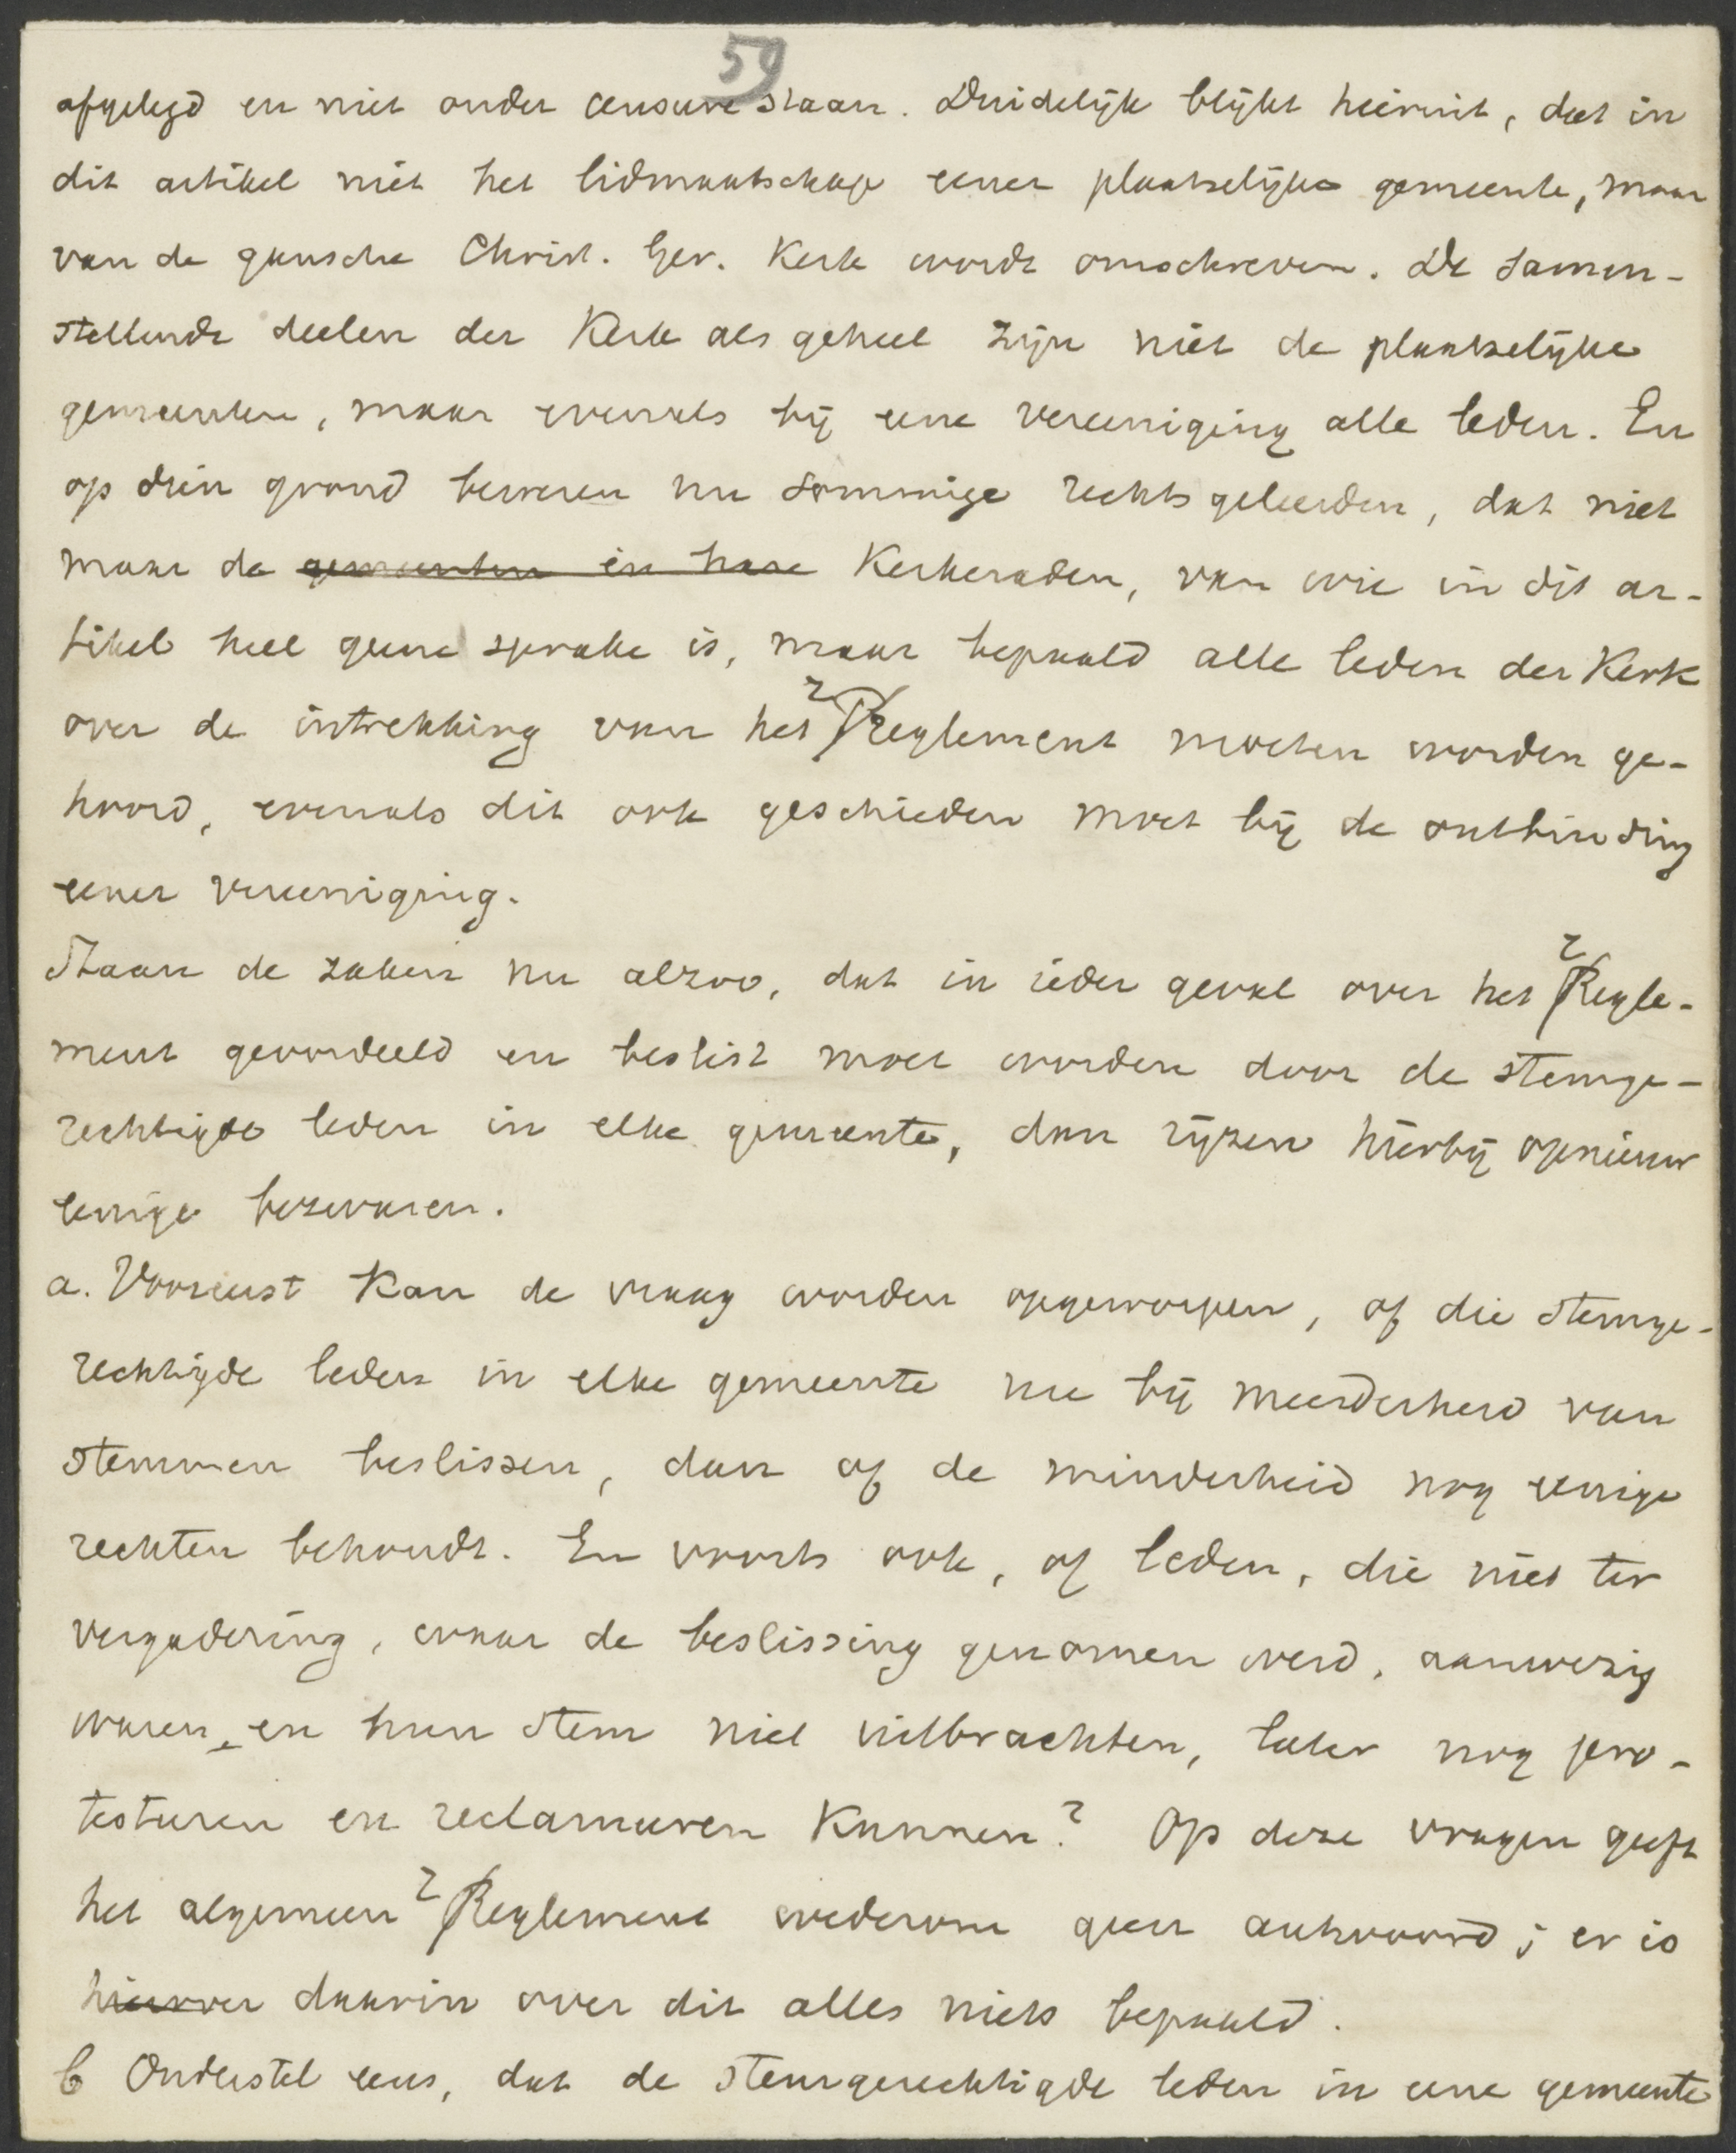 59
afgelegd en niet onder censure staan. Duidelijk blijkt hieruit, dat in
dit artikel niet het lidmaatschap eener plaatselijke gemeente, maar
van de gansche Christ. Ger. Kerk wordt omschreven. De samen-
stellende deelen der Kerk als geheel zijn niet de plaatselijke
gemeenten, maar evenals bij eene vereeniging alle leden. En
op dien grond beweren nu sommige rechtsgeleerden, dat niet
maar de gemeenten en hare Kerkeraden, van wie in dit ar-
tikel heel geene sprake is, maar bepaald alle leden der Kerk
over de intrekking van het reglement moeten worden ge-
hoord, evenals dit ook geschieden moet bij de ontbinding
eener vereeniging.
Staan de zaken nu alzoo, dat in ieder geval over het regle-
ment geoordeeld en beslist moet worden door de stemge-
rechtigde leden in elke gemeente, dan rijzen hierbij opnieuw
eenige bezwaren.
a. Vooreerst kan de vraag worden opgeworpen, of die stemge-
rechtigde leden in elke gemeente nu bij meerderheid van
stemmen beslissen, dan of de minderheid nog eenige
rechten behoudt. En voorts ook, of leden, die niet ter
vergadering, waar de beslissing genomen werd, aanwezig
waren, en hun stem niet uitbrachten, later nog pro-
testeeren en reclameeren kunnen? Op deze vragen geeft
het algemeen reglement wederom geen antwoord; er is
hierover daarin over dit alles niets bepaald.
b Onderstel eens, dat de stemgerechtigde leden in eene gemeente